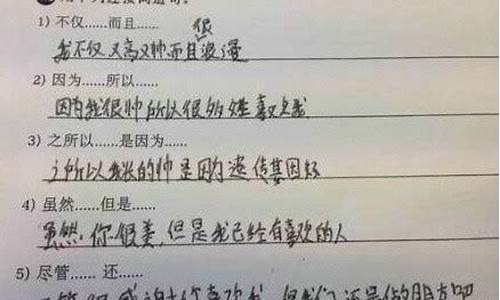 1) 不仅……而且……
很
我不仅又高又帅而且浪漫
2) 因为……所以……
因为我很帅所以很多 喜欢我
3) 之所以……是因为……
之所以我长的帅是因为遗传基因好
4) 虽然……但是……
虽然你很美,但是我已经有喜欢的人
5) 尽管…… 还……
感谢 你喜欢我 但我们还是 朋友吧